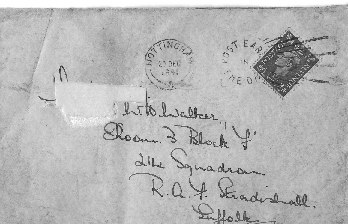 NOTTINGHAM
DEC
1941
POST EARLY
W. Walker,
Room 3 Block 'F'
214 Squadron
R.A.F. Stradishall
Suffolk